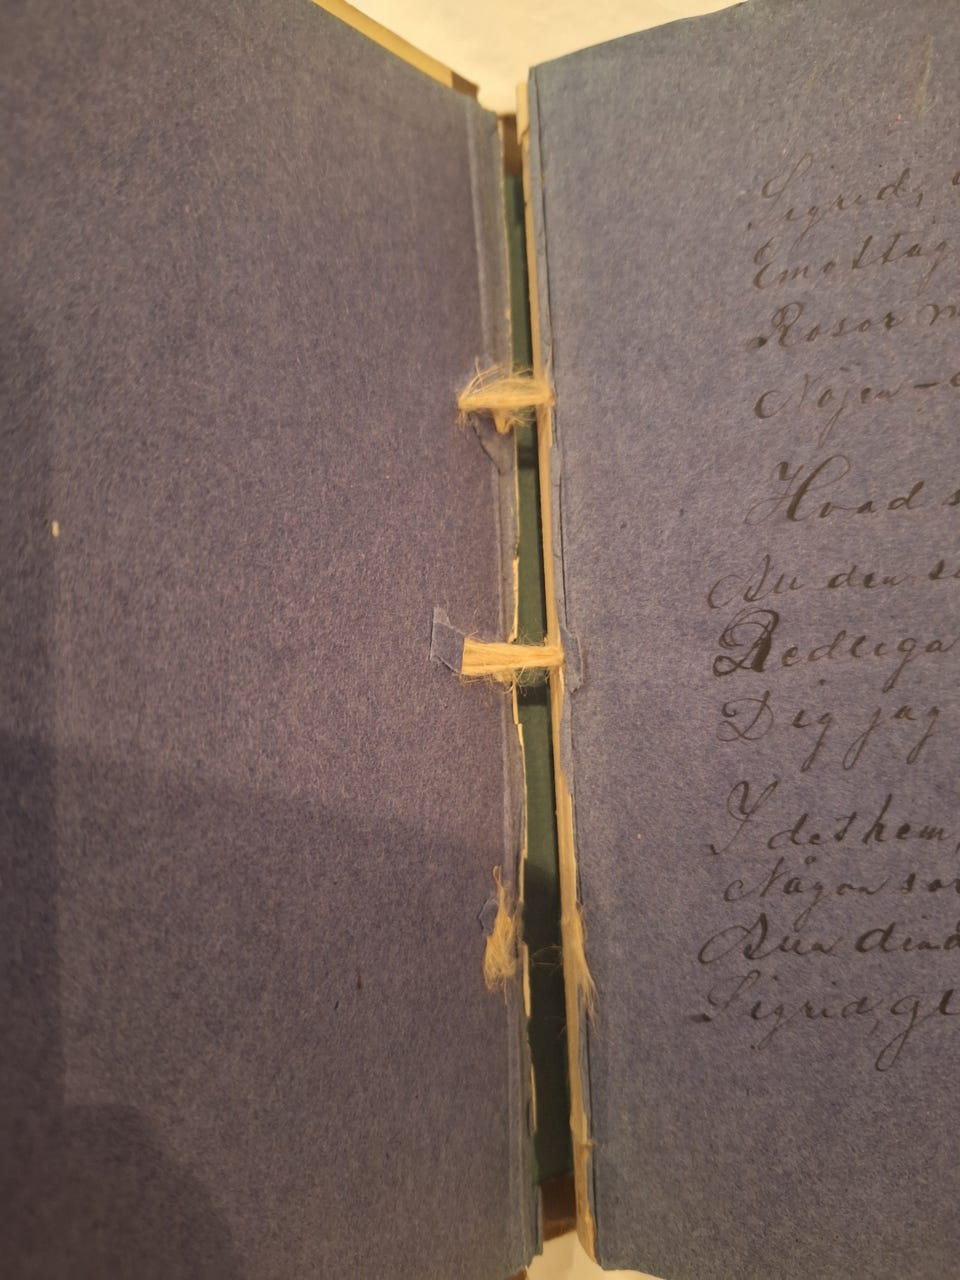 Sigrid,
Emottag
Rosor
Nöjen-
Hvad s
den
Redliga
Dig jag
I det hem,
Någon
Sigrid, gl